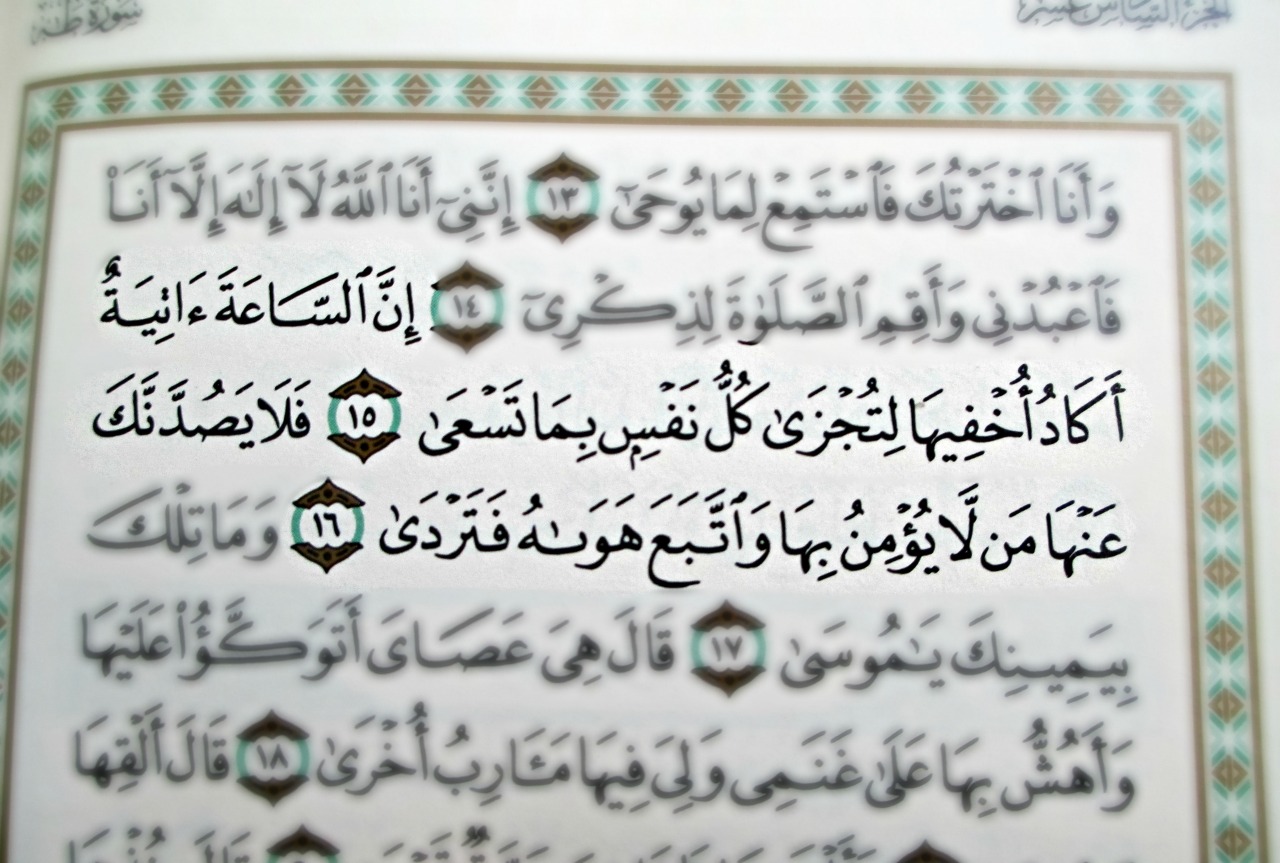 سورة طه الجزء السادس عشر
وَأَنَا ٱخْتَرْتُكَ فَٱسْتَمِعْ لِمَا يُوحَىٰٓ ١٣ إِنَّنِىٓ أَنَا ٱللَّهُ لَآ إِلَٰهَ إِلَّآ أَنَا۠
فَٱعْبُدْنِى وَأَقِمِ ٱلصَّلَوٰةَ لِذِكْرِىٓ ١٤ إِنَّ ٱلسَّاعَةَ ءَاتِيَةٌ
أَكَادُ أُخْفِيهَا لِتُجْزَىٰ كُلُّ نَفْسٍۭ بِمَا تَسْعَىٰ ١٥ فَلَا يَصُدَّنَّكَ
عَنْهَا مَن لَّا يُؤْمِنُ بِهَا وَٱتَّبَعَ هَوَىٰهُ فَتَرْدَىٰ ١٦ وَمَا تِلْكَ
بِيَمِينِكَ يَٰمُوسَىٰ ١٧ قَالَ هِىَ عَصَاىَ أَتَوَكَّؤُا۟ عَلَيْهَا
وَأَهُشُّ بِهَا عَلَىٰ غَنَمِى وَلِىَ فِيهَا مَـَٔارِبُ أُخْرَىٰ ١٨ قَالَ أَلْقِهَا